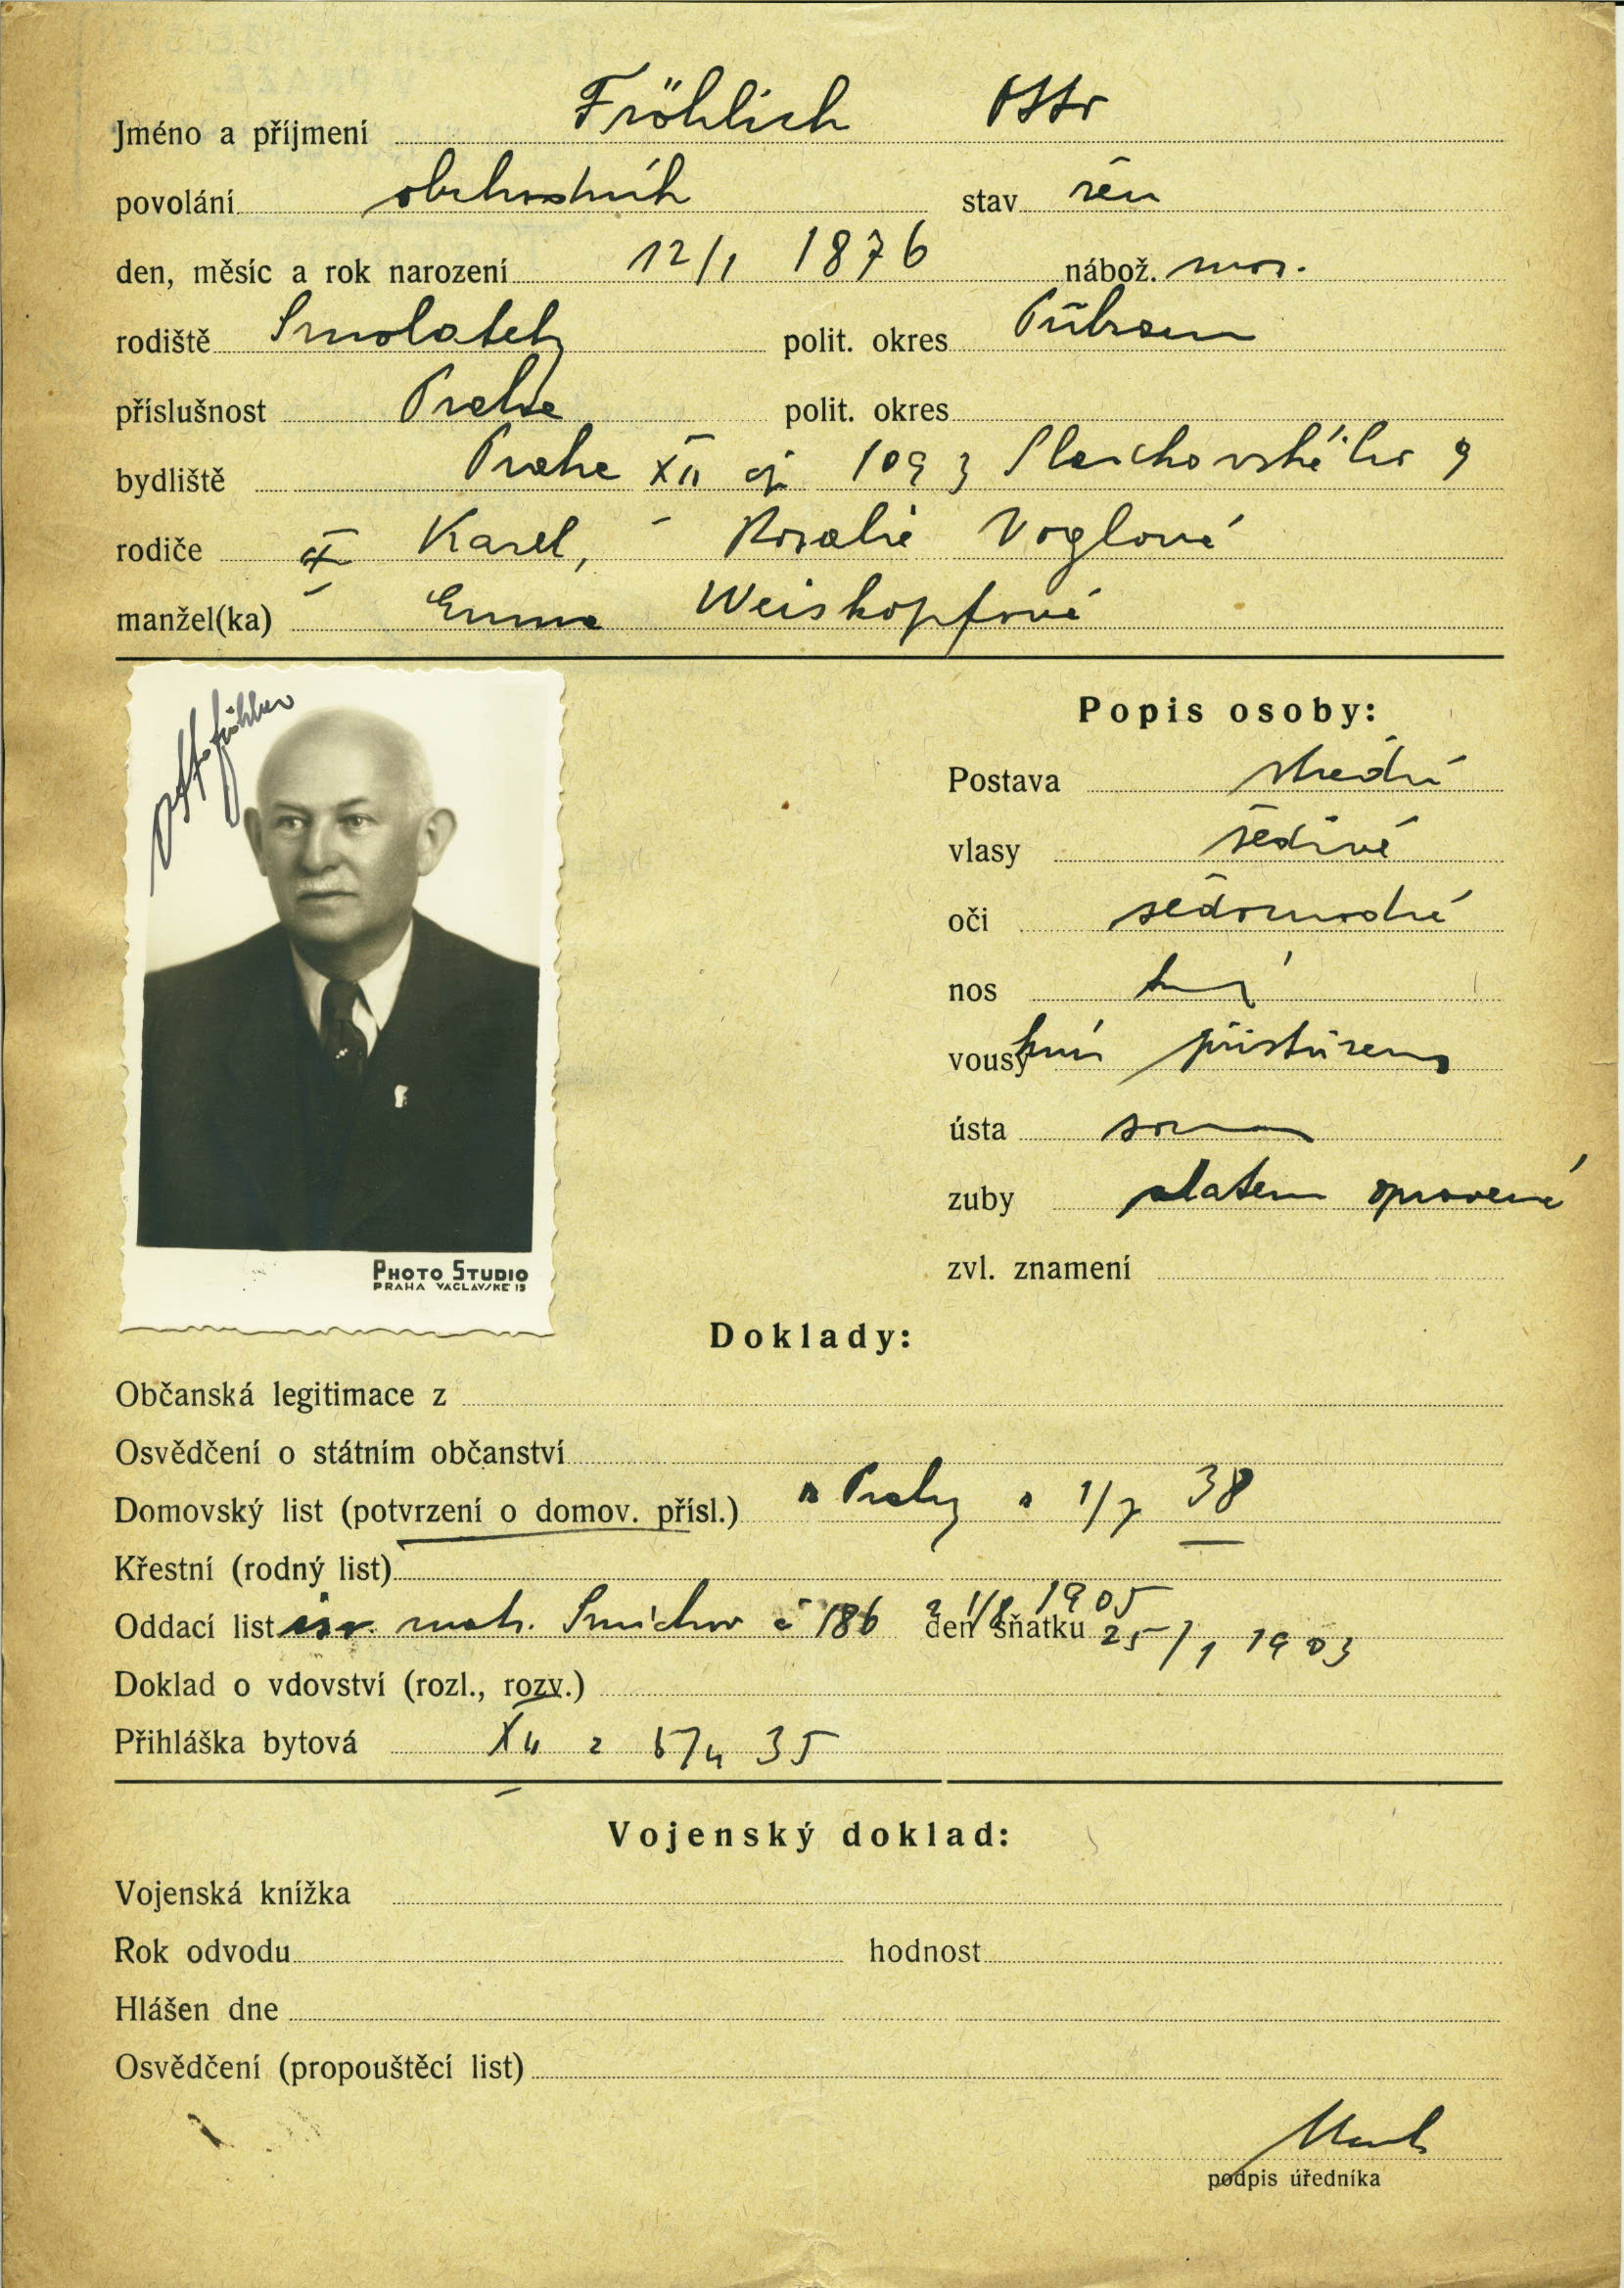 Jméno a příjmení Fröhlich Otto
povolání obchodník stav žen
den, měsíc a rok narození 12/1 1876 nábož. mos.
rodiště Smolotely polit. okres Příbram
příslušnost Praha polit. okres
bydliště Praha XII čp 1093 Slavíkovského 9
rodiče Karel, Rosalie Voglová
manžel(ka) Emma Weiskopfová
Otto Fröhlich
Popis osoby:
Postava střední
vlasy šedivé
oči šedomodré
nos
vousy knír přistřižený
ústa
zuby zlatem opravené
zvl. znamení
PHOTO STUDIO
PRAHA VÁCLAVSKÉ 15
Doklady:
Občanská legitimace z
Osvědčení o státním občanství
Domovský list (potvrzení o domov. přísl.) Prahy 1/7 38
Křestní (rodný list)
Oddací list isr. mat. Smíchov č 186 1905 den sňatku 25/1 1903
Doklad o vdovství (rozl., rozv.)
Přihláška bytová XII z 35
Vojenský doklad:
Vojenská knížka
Rok odvodu hodnost
Hlášen dne
Osvědčení (propouštěcí list)
podpis úředníka